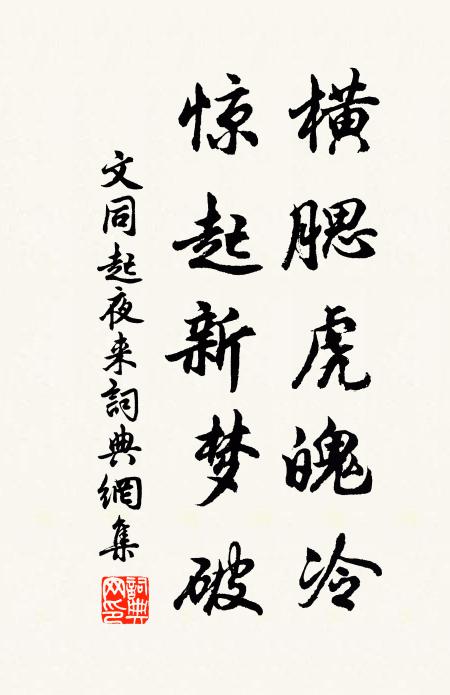 横腮虎魄冷
惊起新梦破
文同起夜来詞典網集
詞典網印